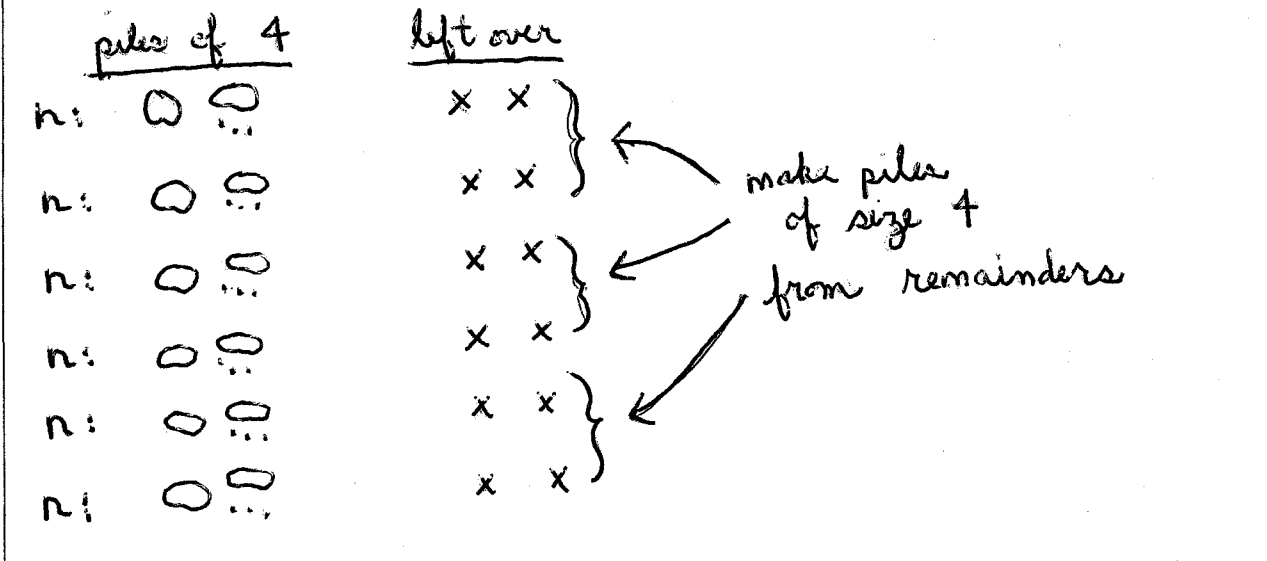 piles of 4
left over
n:
x x
n:
x x
n:
x x
n:
x x
n:
x x
n:
x x
make piles
of size 4
from remainders